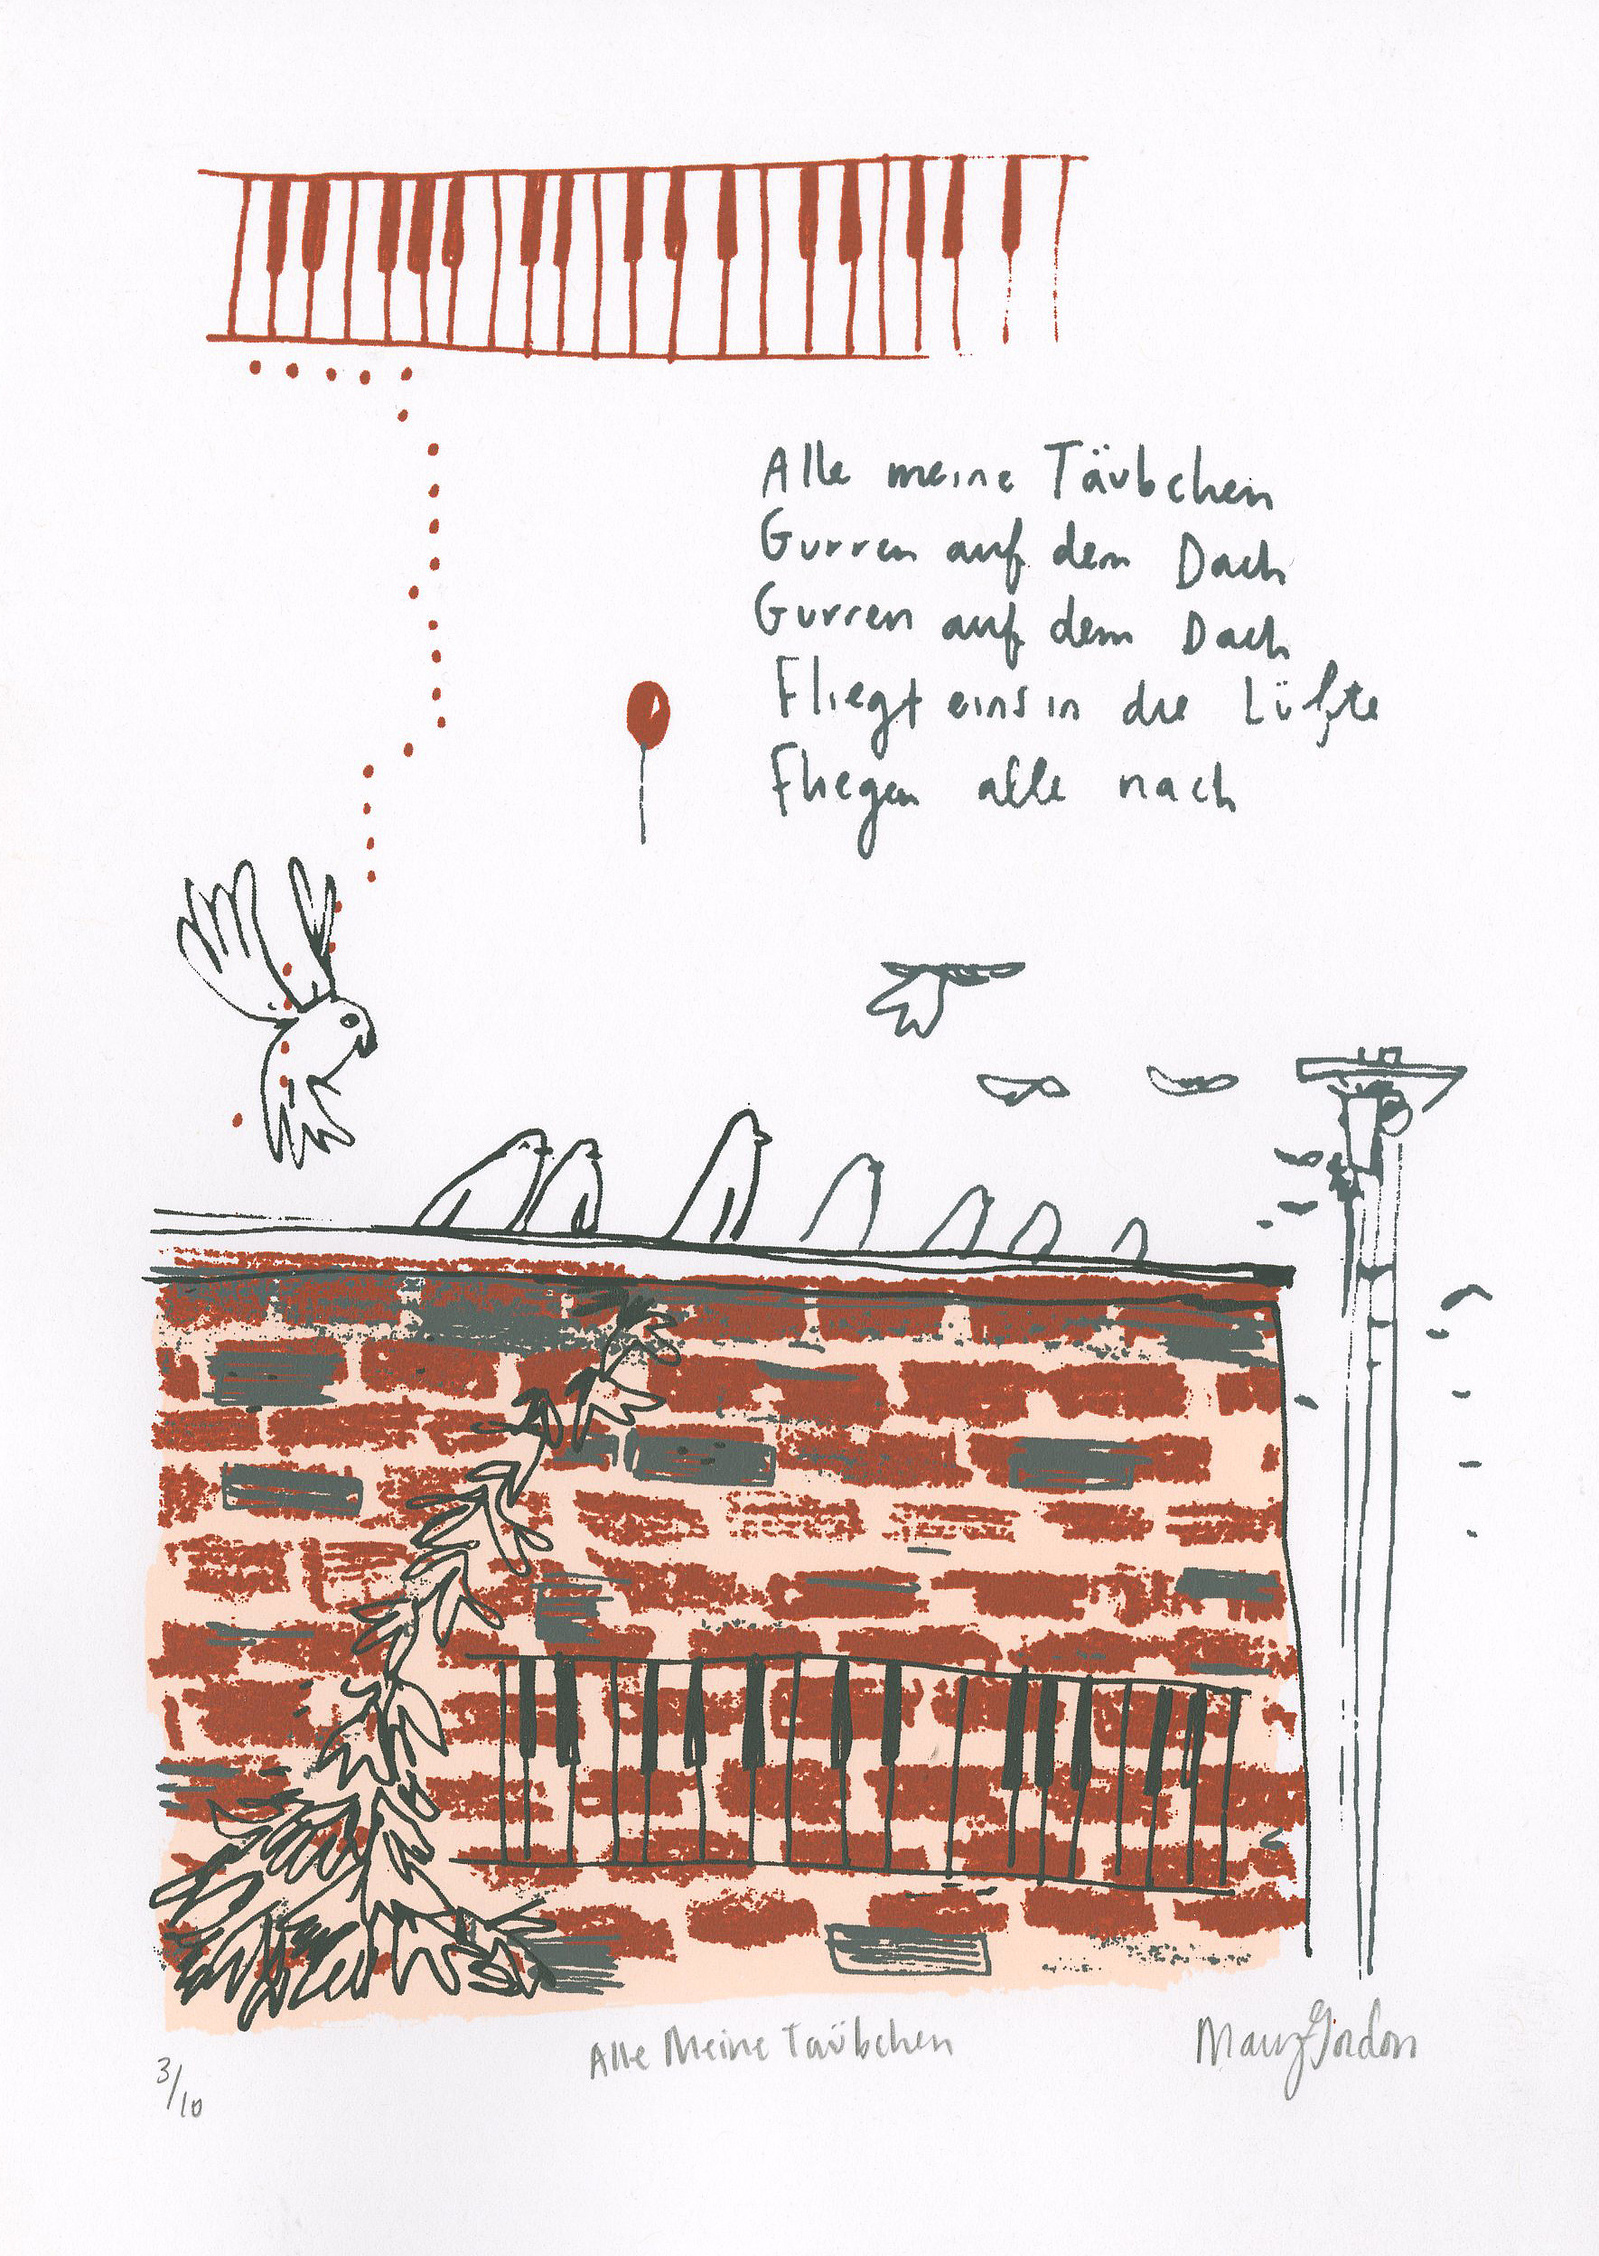 Alle meine Täubchen
Gurren auf dem Dach
Gurren auf dem Dach
Fliegt eins in die Lüfte
Fliegen alle nach
3/10
Alle Meine Täubchen
Gordon